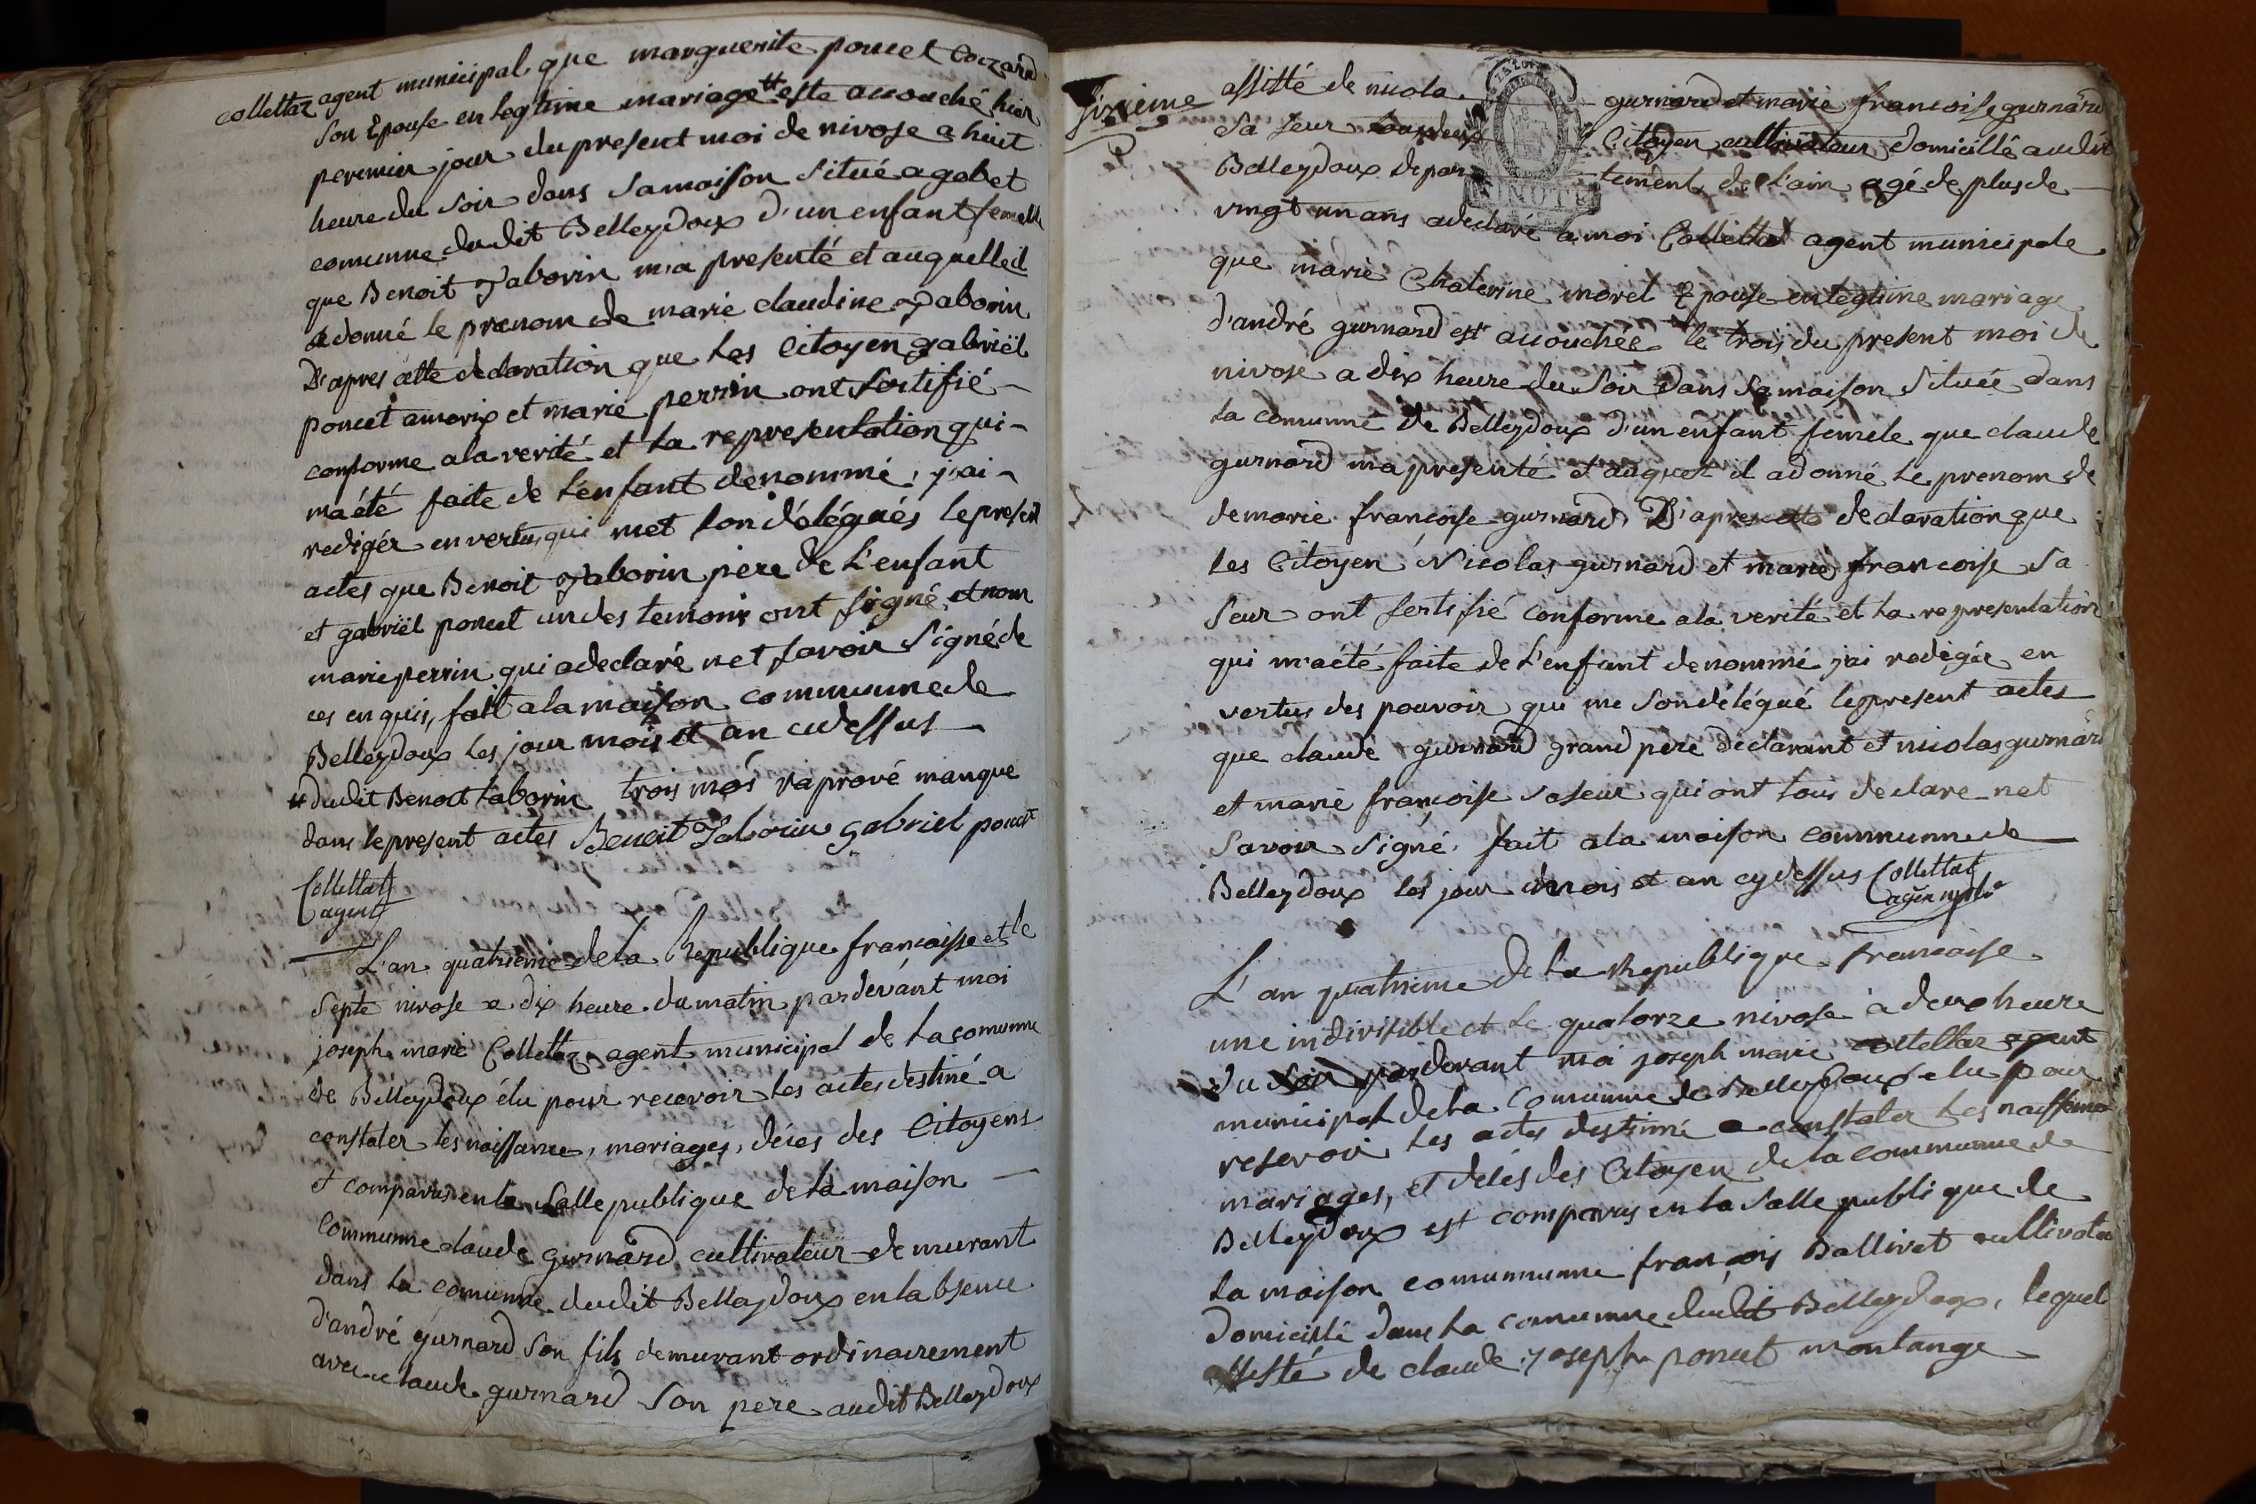 collettaz agent municipal que marguerite poncet Cozard
son Epouse en legtime mariage # este acouché hier
peremier jour du present moi de nivose a huit
heure du soir dans sa maison situé a gobet
comunne dudit Belleydoux d'un enfant femelle
que Benoit Taborin m'a presenté et auquelle il
a donné le prenom de marie claudine Taborin
D'apres cette declaration que les Citoyen gabriël
poncet amorix et marie perrin ont sertifié
conforme a la verité et la representation qui
ma été faite de l'enfant denommé, j'ai
rediger en vertus qui met son délégués le present
actes que Benoit Taborin pere de L'enfant
et gabriël poncet un des temoins ont signé, et nom
marie perrin qui a declaré net savoir signé de
ces enquis, fait a la maison communne de
Belleydoux les jour mois et an cidessus
# dudit Benoit taborin trois mos raprové manque
dans le present actes Benoit Taborin gabriel poncet
Collettaz
agent
L'an quatrieme de la Republique francaisse et le
septe nivose a dix heure du matin pardevant moi
joseph marie Collettaz agent municipal de la comunne
de Belleydoux élu pour recevoir les actes destiné a
constater les naissance, mariages, déces des Citoyens
et comparus en la salle publique de la maison
communne claude gurnard cultivateur demurant
dans la comunne dudit Belleydoux en labsence
d'andré gurnard son fils demurant ordinairement
avec claude gurnard son pere audit Belleydoux
sixieme
assitté de nicola gurnard et marie francoise gurnard
sa seur Citoyen cultivateur domicillé audit
Belleydoux depar tement de l'ain agé de plus de
vingt un ans a declaré a moi Collettaz agent municipale
que marie Chaterine morel Epouse en legtime mariage
d'andré gurnard est acouchée le trois du present moi de
nivose a dix heure du soir dans sa maison située dans
la comunne de Belleydoux d'un enfant femele que claude
gurnard ma presenté et auquel il a donné le prenom de
de marie françoise gurnard D'apres cette declaration que
les Citoyen Nicolas gurnard et marie francoise sa
seur ont sertifié conforme a la verité et la representation
qui m'a été faite de L'enfant denommé j'ai redigée en
vertus des pouvoir qui me son délégué le present actes
que claude gurnard grand pere declarant et nicolas gurnard
et marie françoise sa seur qui ont tous declare net
savoir signé. fait a la maison communne de
Belleydoux les jour mois et an cydessus Collettaz
agen
L'an quatrieme de la Republique francaise
une indivisible et le quatorze nivose a deux heure
du soir pardevant moi joseph marie collettaz agent
municipal de la Comunne de Belleydoux elu pour
resevoir les actes destiné a constater les naissance
mariages, et delés des Citoyen de la communne de
Belleydoux est comparus en la salle publique de
la maison comunnunne françois Ballivet cultivateur
domicilié dans la comunne dudit Belleydoux, lequel
assisté de claude joseph poncet montange